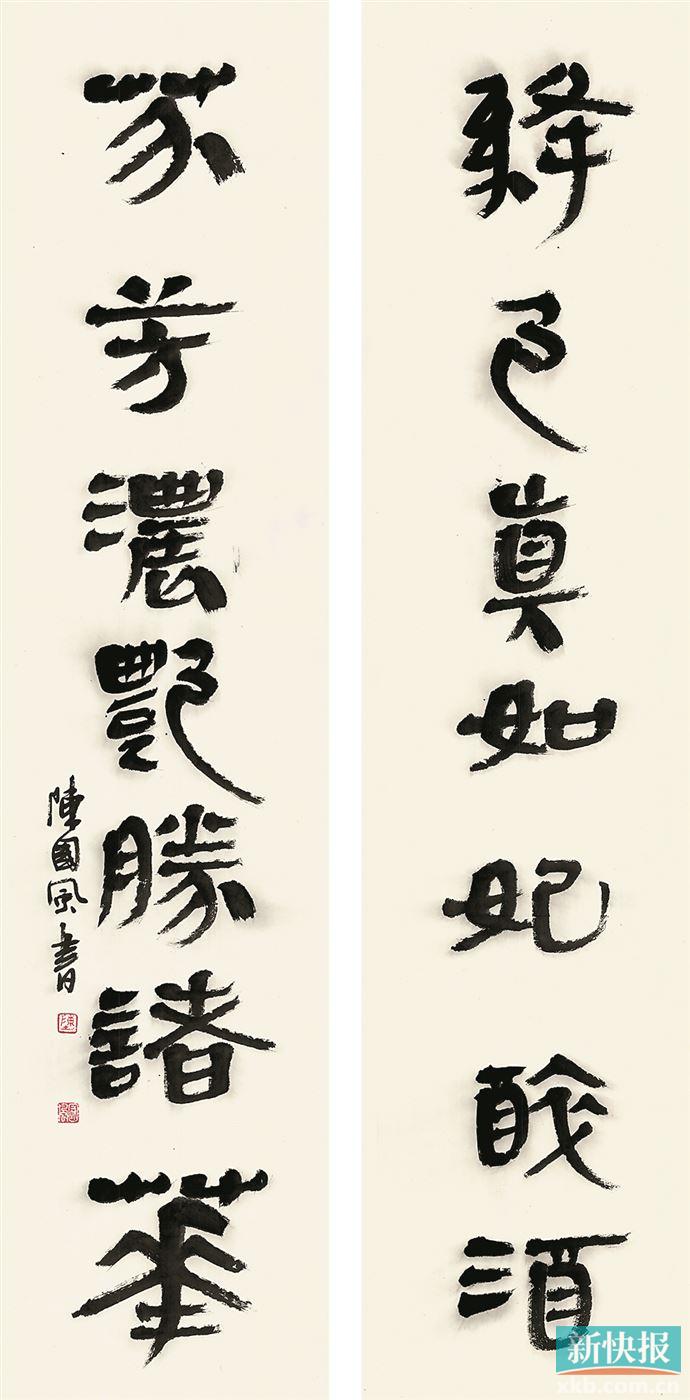 絳色真如妃醉酒
芬芳濃艷勝諸華
陳國風書
新快报
xkb.com.cn